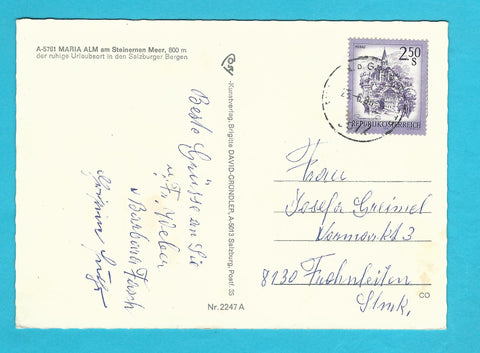 A-5761 MARIA ALM am Steinernen Meer, 800 m
der ruhige Urlaubsort in den Salzburger Bergen.
Beste Grüsse an Sie
u. Fr. Weber
Barbara
-Kunstverlag, Brigitte DAVID-GRÜNDLER, A-5013 Salzburg, Postf. 35
Nr. 2247 A
MURAU
2.50
S
REPUBLIK ÖSTERREICH
Frau
Josefa Greimel
Vormarkt 3
8130 Frohnleiten
Stmk.
CO